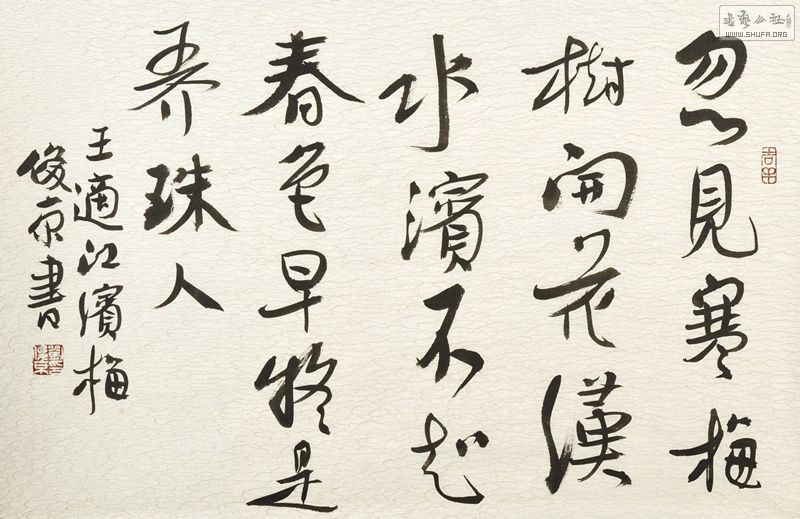 忽見寒梅
樹開花漢
水濱不知
春色早疑是
弄珠人
王適江濱梅
俊京書
書藝公社
WWW.SHUFA.ORG